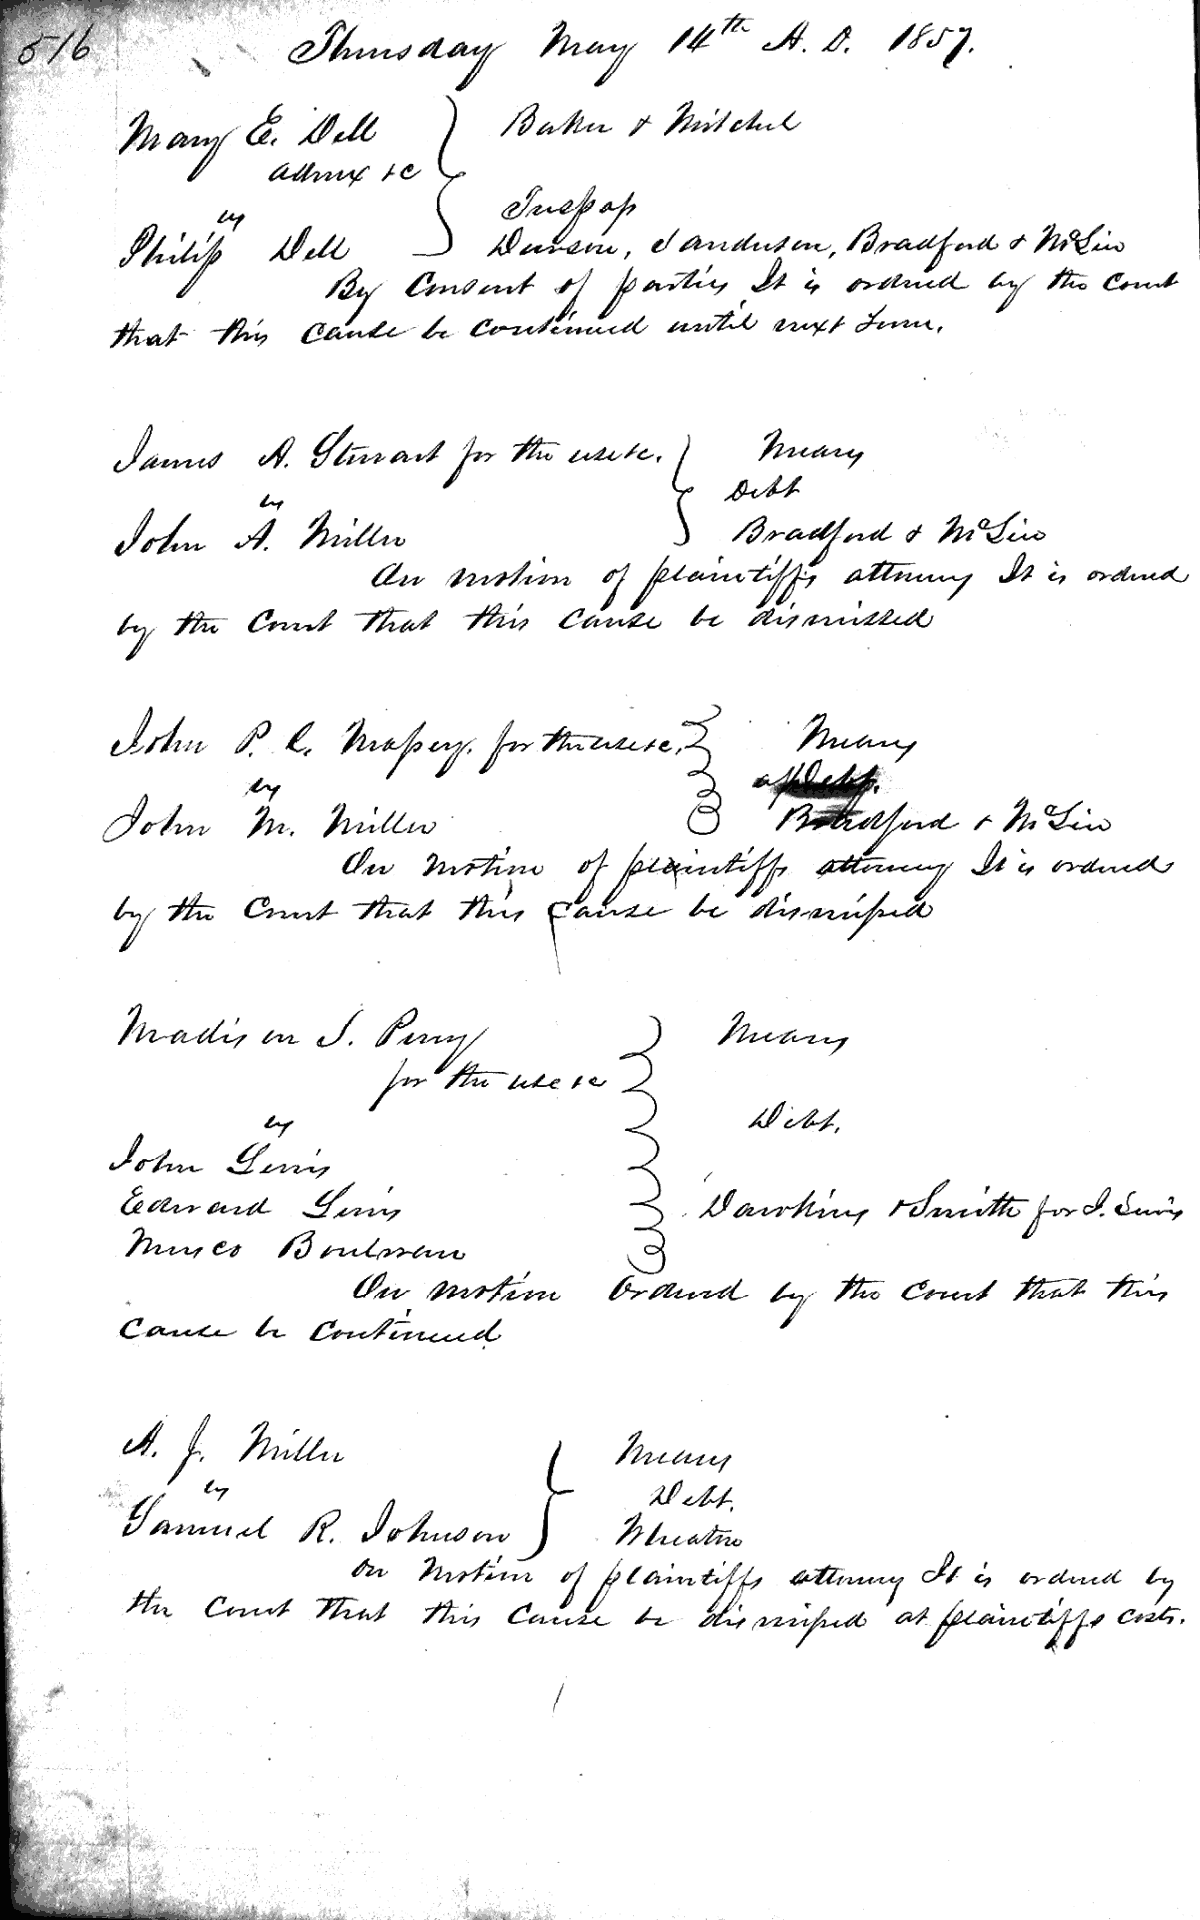 516
Thursday May 14th A. D. 1857.
Mary E. Dell
Baker & Mitchel
admx &c
vs
Trespass
Philip Dell
Dawson, Sanderson, Bradford & McLin
By Consent of parties It is ordered by the Court
that this cause be continued until next Term.
James A. Stewart for the use &c.
Means
vs
Debt
John A. Miller
Bradford & McLin
On motion of plaintiffs attorney It is ordered
by the Court that this cause be dismissed
John P. C. Massey. for the use &c.
Means
vs
John M. Miller
Bradford & McLin
On motion of plaintiffs attorney It is ordered
by the Court that this cause be dismissed
Madison S. Perry
Means
for the use &c
vs
Debt.
John Lewis
Edward Lewis
Dawkins & Smith for J. Lewis
Boulware
On motion Ordered by the Court that this
cause be continued
A. J. Miller
Means
vs
Debt.
Samuel R. Johnson
Wheaton
On motion of plaintiffs attorney It is ordered by
the Court that this cause be dismissed at plaintiffs costs.